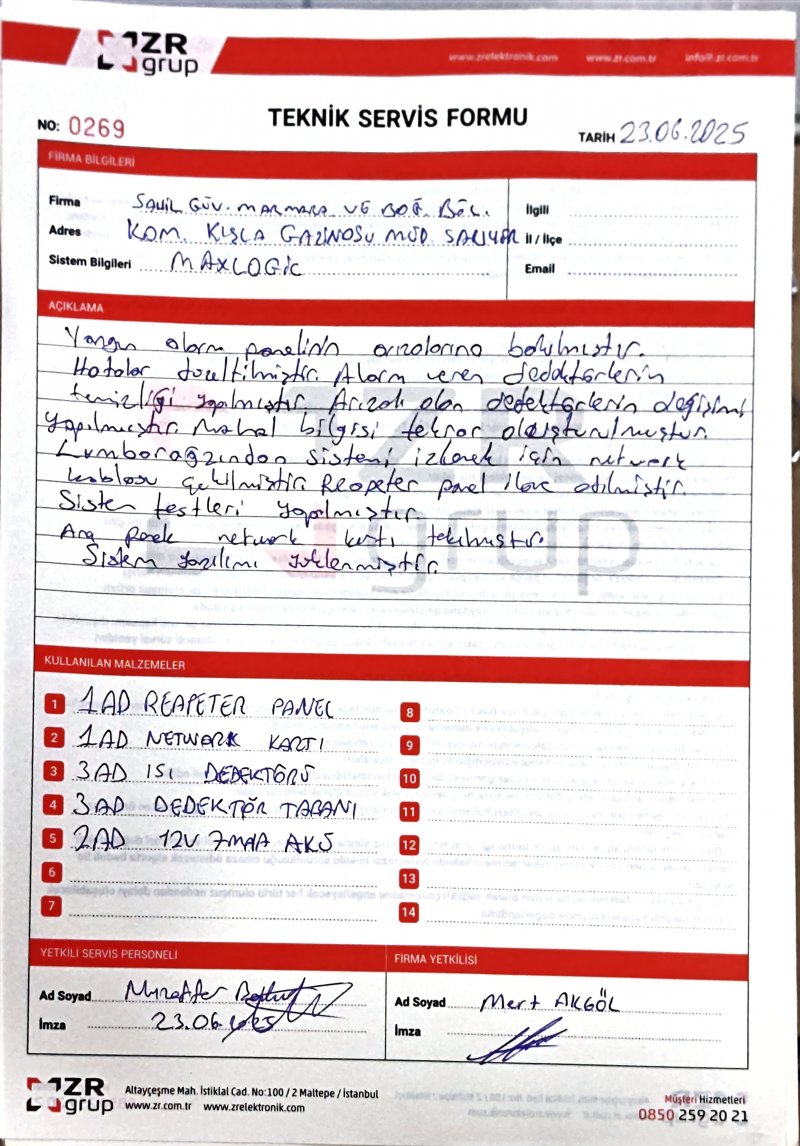 ZR grup
www.zrelektronik.com www.zr.com.tr info@zr.com.tr
NO: 0269
TEKNİK SERVİS FORMU
TARİH 23.06.2025
FİRMA BİLGİLERİ
Firma SAHİL GÜV. MARMARA VE BOĞ. BÖL.
Adres KOM. KIŞLA GAZİNOSU MÜD. SARIYER
Sistem Bilgileri MAXLOGIC
İlgili
İl / İlçe
Email
AÇIKLAMA
Yangın alarm panelinin arızalarına bakılmıştır.
Hatalar düzeltilmiştir. Alarm veren dedektörlerin
temizliği yapılmıştır. Arızalı olan dedektörlerin değişimi
yapılmıştır. Mahal bilgisi tekrar oluşturulmuştur.
Lumbarağzından sistemi izlemek için network
kablosu çekilmiştir. Reapeter panel ilave edilmiştir.
Sistem testleri yapılmıştır
Ana network kartı takılmıştır.
Sistem yazılımı yüklenmiştir.
KULLANILAN MALZEMELER
1 1 AD REAPETER PANEL
2 1 AD NETWORK KARTI
3 3 AD ISI DEDEKTÖRÜ
4 3 AD DEDEKTÖR TABANI
5 2 AD 12V 7MAA AKÜ
6
7
8
9
10
11
12
13
14
YETKİLİ SERVİS PERSONELİ
Ad Soyad Muzaffer
İmza 23.06.2025
FİRMA YETKİLİSİ
Ad Soyad Mert AKGÖL
İmza
ZR grup
Altayçeşme Mah. İstiklal Cad. No:100 / 2 Maltepe / İstanbul
www.zr.com.tr www.zrelektronik.com
Müşteri Hizmetleri
0850 259 20 21